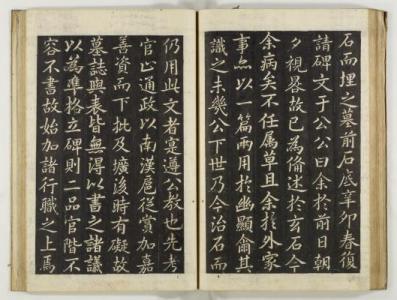 石而埋之墓前石底辛卯春復
請碑文于公公曰余於前日朝
夕視啓故已為偹述於玄石今
余病矣不任屬草且余於外家
事無以一篇兩用於幽顯侖其
識之未幾公下世乃今治石而
仍用此文者寔遵公教也先考
官止通政以南漢扈從賞加嘉
善資而下批及壙後時有礙故
墓誌與表皆無得以書之諸議
以為準格立碑則二品官階不
容不書故始加諸行職之上焉